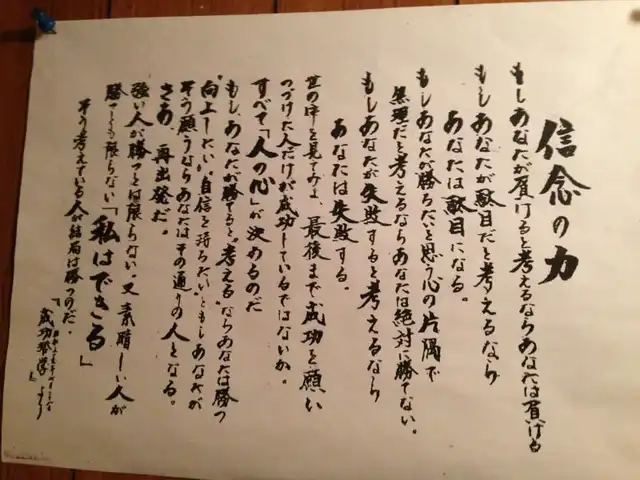 信念の力
もしあなたが負けると考えるならあなたは負ける
もしあなたが駄目だと考えるなら
あなたは駄目になる。
もしあなたが勝ちたいと思う心の片隅で
無理だと考えるならあなたは絶対に勝てない。
もしあなたが失敗すると考えるなら
あなたは失敗する。
世の中を見てみよ、最後まで成功を願い
つづけた人だけが成功しているではないか。
すべて「人の心」が決めるのだ
もし、あなたが勝てると"考える"ならあなたは勝つ
"向上したい""自信を持ちたい"ともしあなたが
そう願うならあなたはその通りの人となる。
さあ、再出発だ。
強い人が勝つとは限らない。又、素晴しい人が
勝つとも限らない「私はできる」
そう考えている人が結局は勝つのだ。
「
成功哲学」より